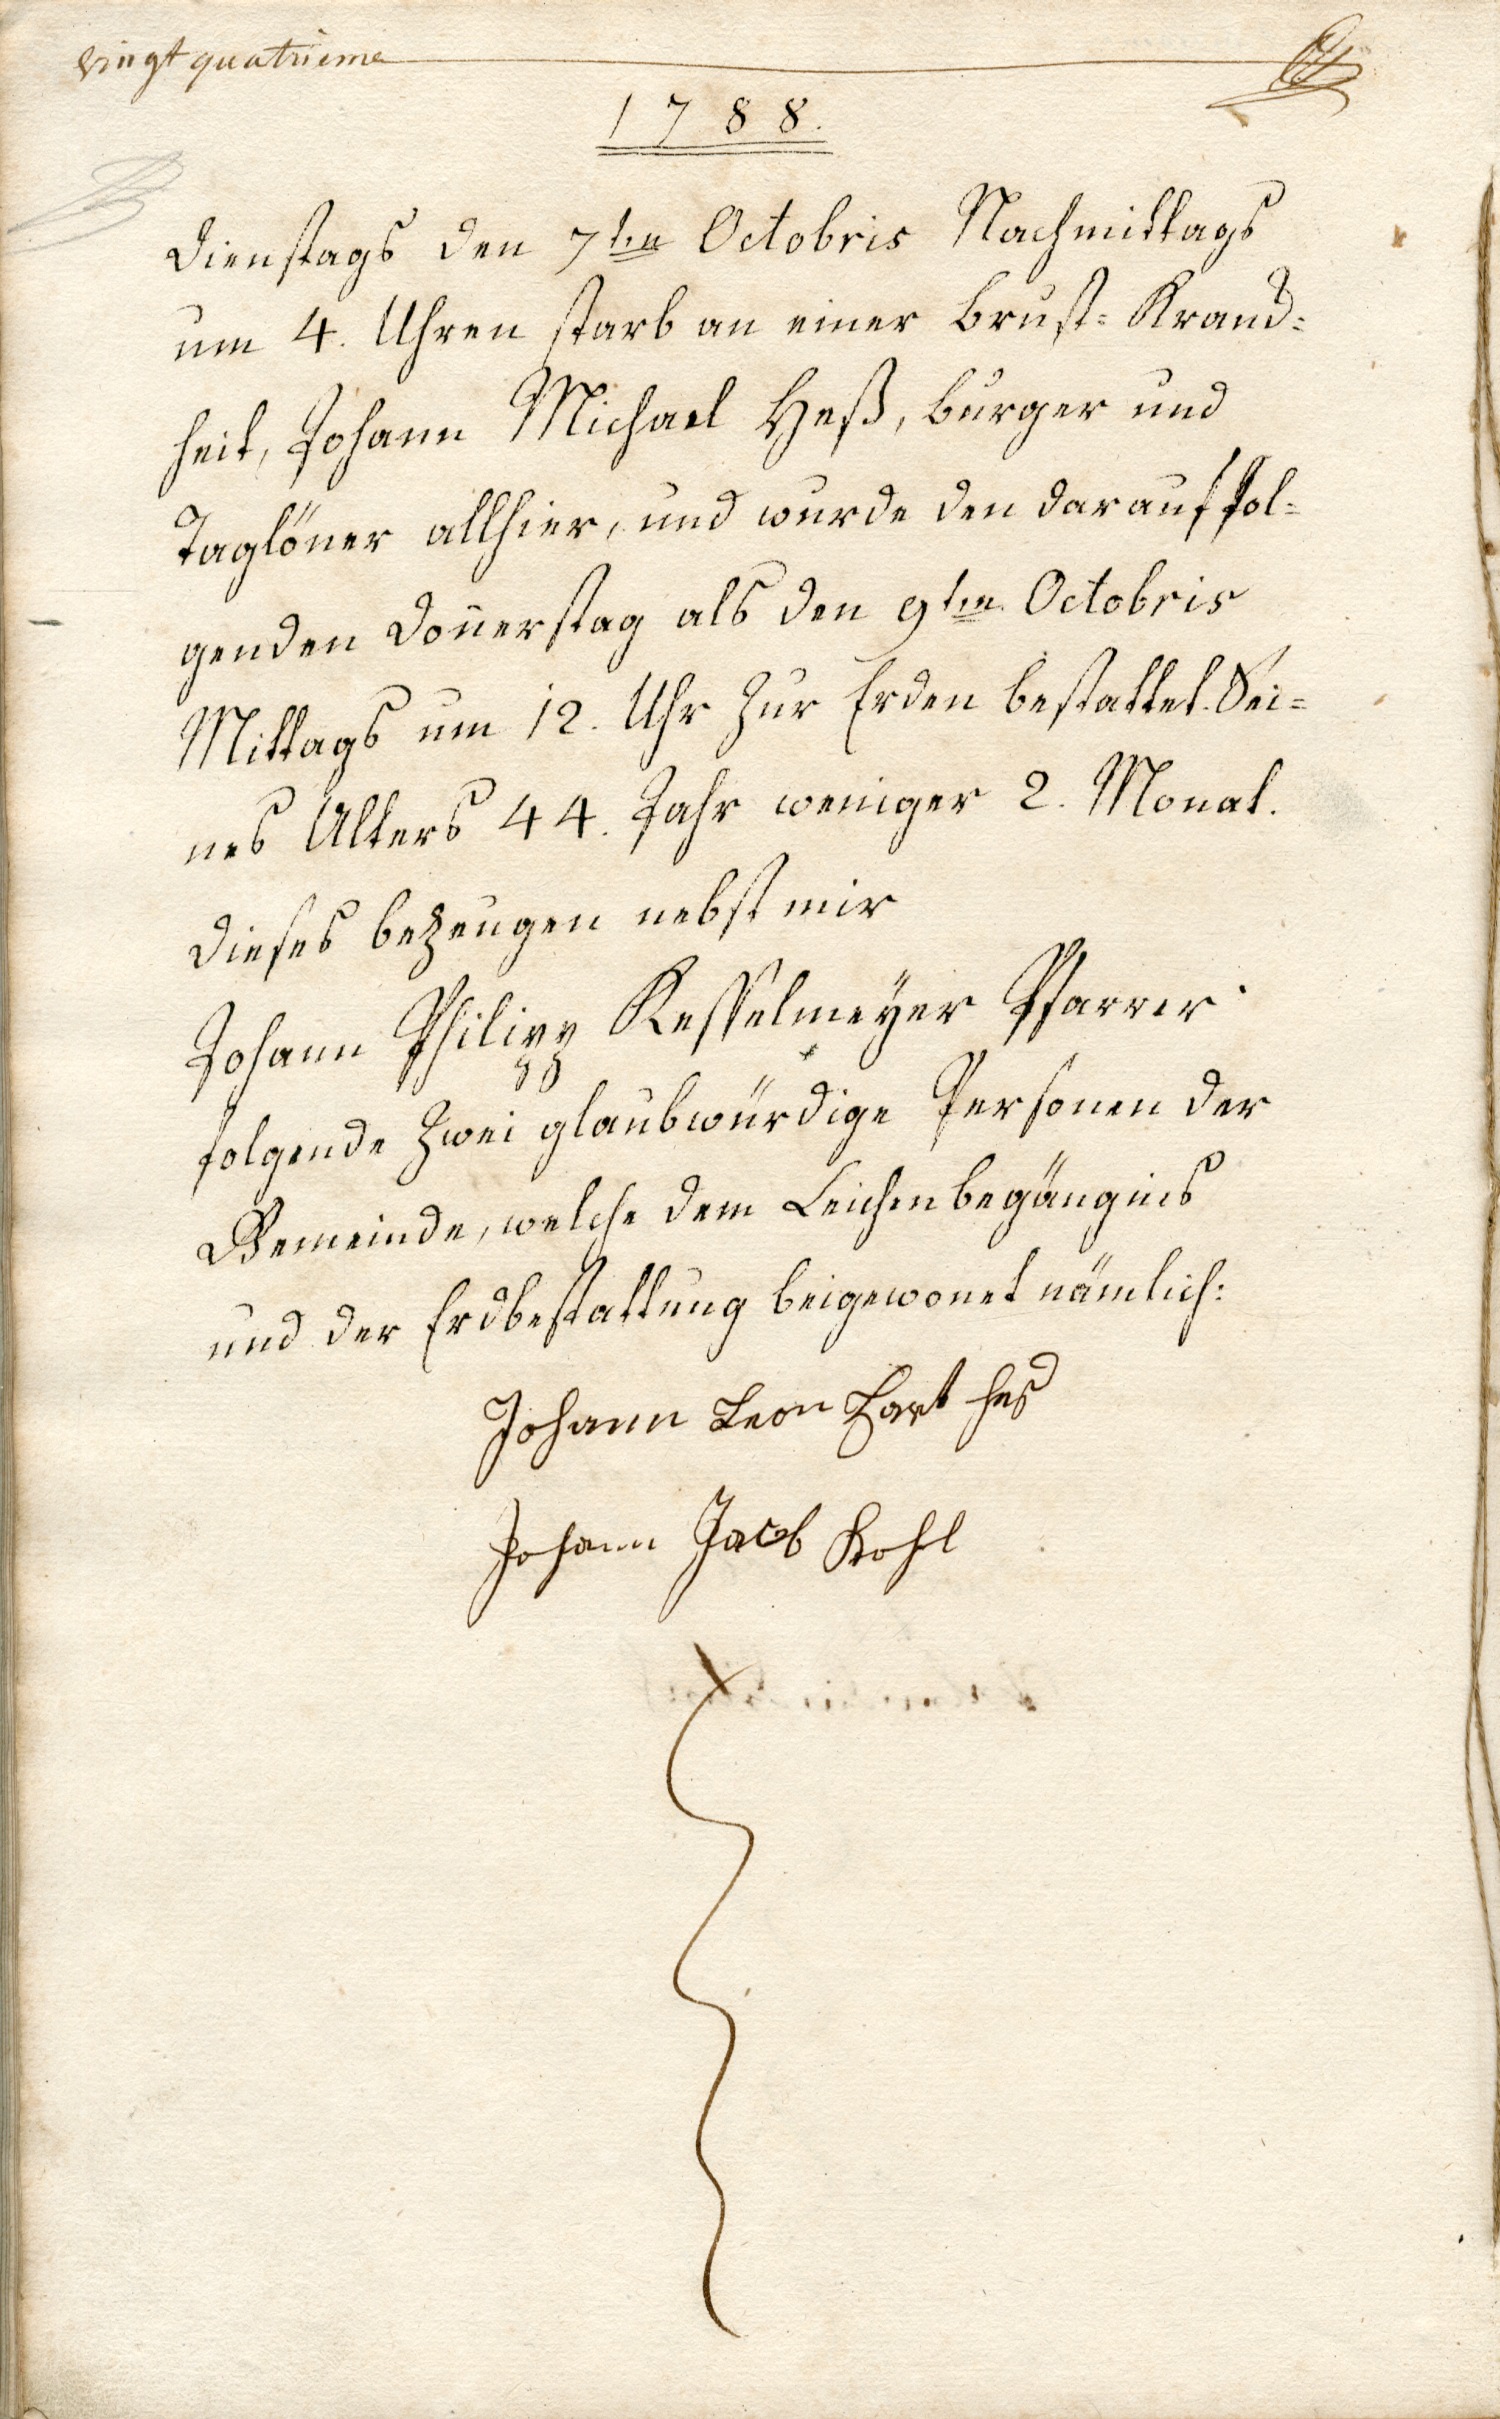 vingt quatrième
1788.
Dienstags den 7ten Octobris Nachmittags
um 4. Uhren starb an einer Brust= Kranck=
heit, Johann Michael Heß, burger und
Taglöner allhier, und wurde den darauf fol=
genden Don̄erstag als den 9ten Octobris
Mittags um 12. Uhr zur Erden bestattet. Sei=
nes Alters 44. Jahr weniger 2. Monat.
Dieses bezeugen nebst mir
Johann Philipp Kesselmeÿer Pfarrer
folgende zwei glaubwürdige Personen der
Gemeinde, welche dem Leichenbegängnis
und der Erdbestattung beigewonet nämlich:
Johann Leon Hart hes
Johann Jacob Kohl